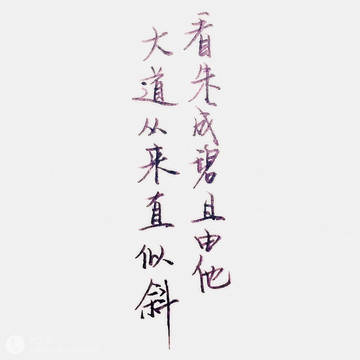 看朱成碧且由他
大道从来直似斜